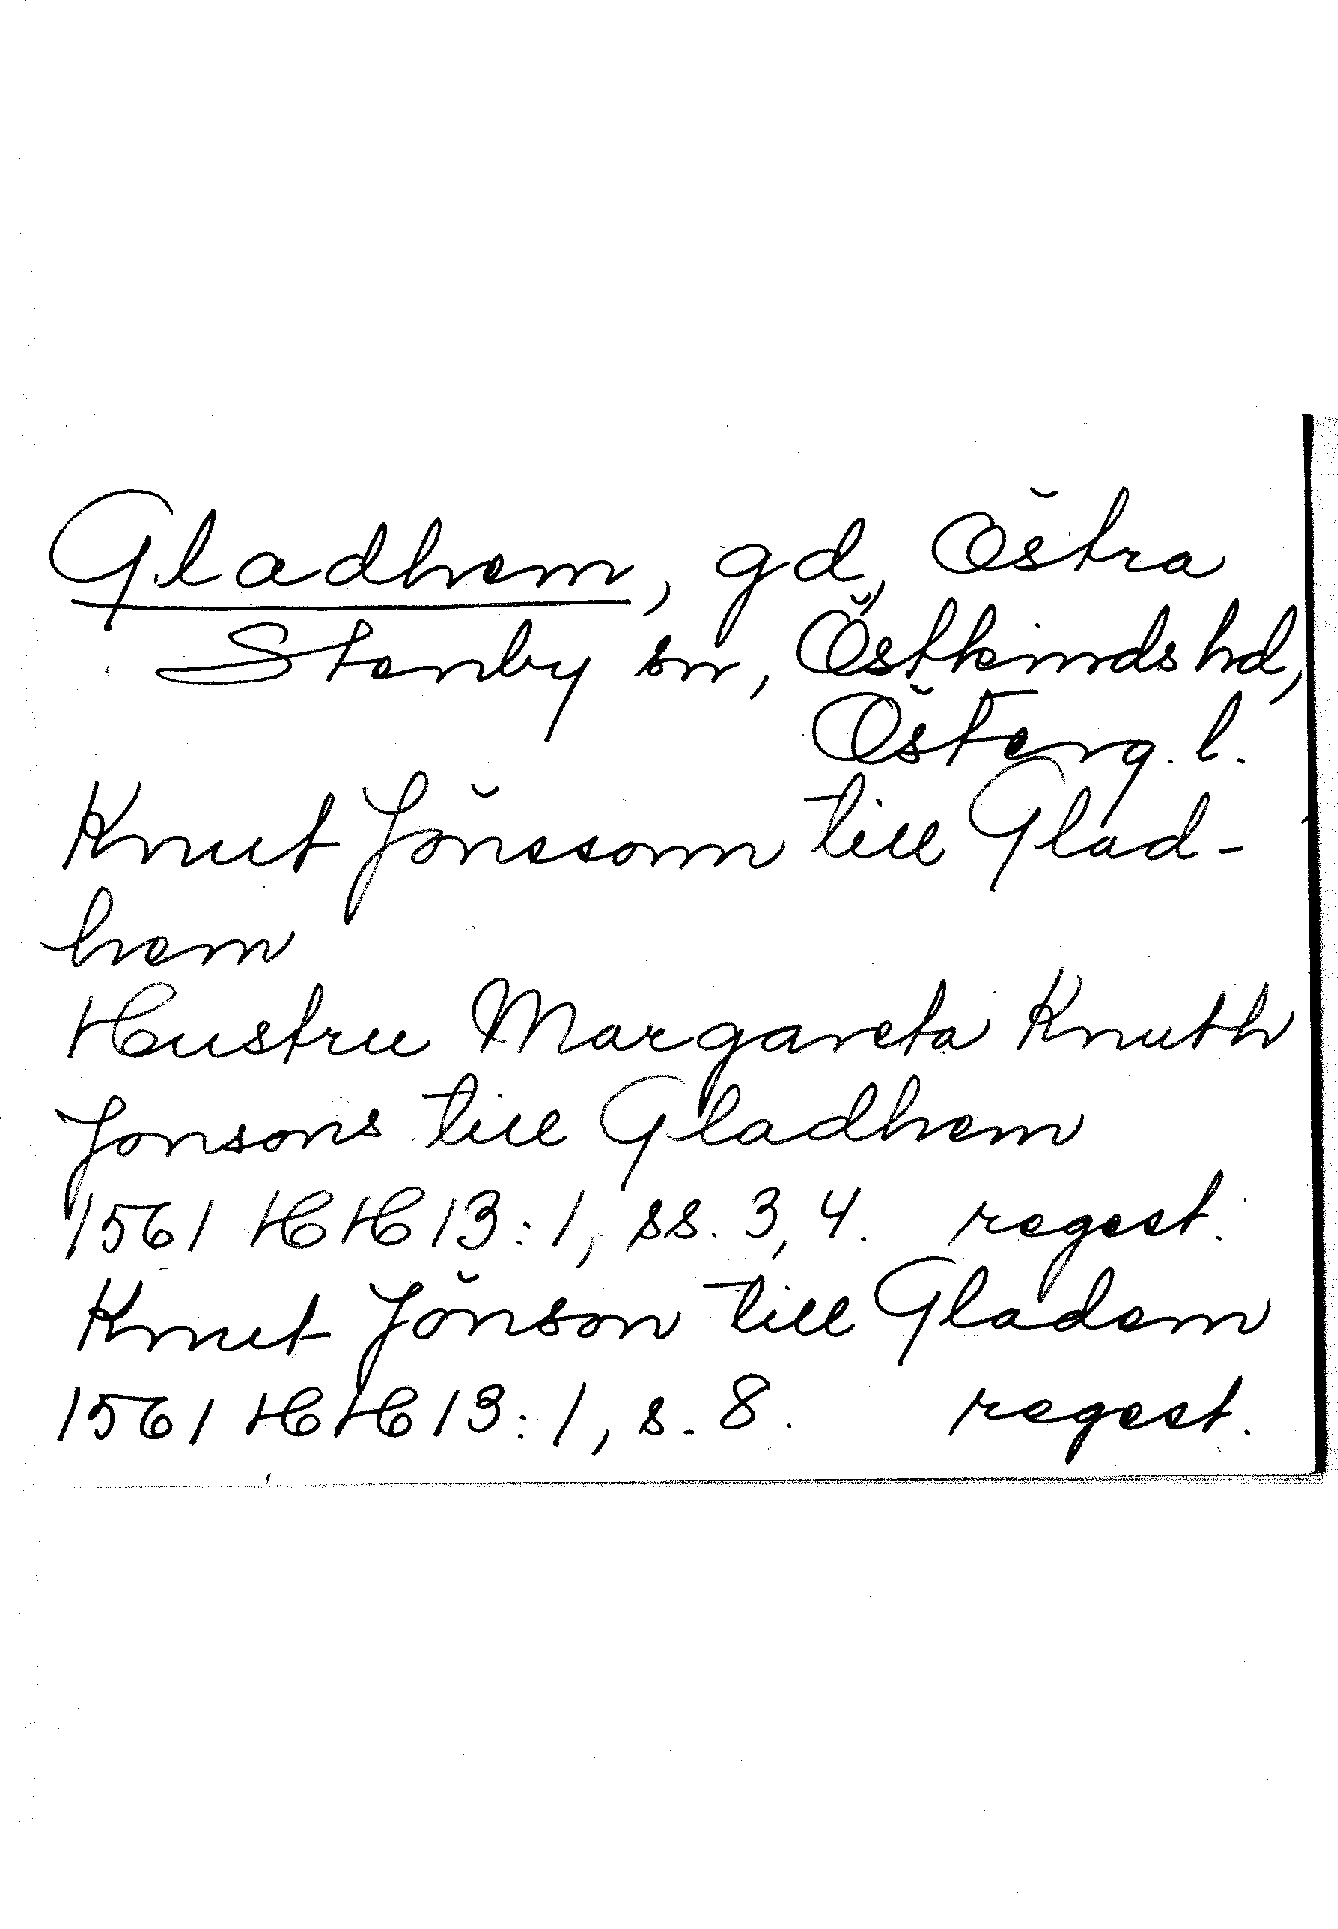 Gladhem, gd, Östra
Stenby sn, Östkinds hd,
Österg. l.
Knut Jönssonn till Glad-
hem
Hustru Margareta Knuth
Jonsons till Gladhem
1561 HH 13:1, ss. 3, 4. regest.
Knut Jönson till Gladem
1561 HH 13:1, s. 8. regest.